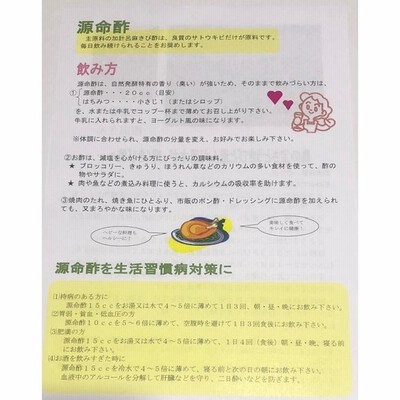 源命酢
主原料の加計呂麻きび酢は、良質のサトウキビだけが原料です。
毎日飲み続けられることをお奨めします。
飲み方
源命酢は、自然発酵特有の香り(臭い)が強いため、そのままで飲みづらい方は、
①源命酢・・・20cc(目安)
はちみつ・・・・小さじ1(またはシロップ)
を、水または牛乳でコップ一杯まで薄めてお召し上がり下さい。
牛乳に入れられますと、ヨーグルト風の味になります。
※体調に合わせられ、源命酢の分量を変え、お好みでお楽しみ下さい。
②お酢は、減塩を心がける方にぴったりの調味料。
★ ブロッコリー、きゅうり、ほうれん草などのカリウムの多い食材を使って、酢の
物やサラダに。
★ 肉や魚などの煮込み料理に使うと、カルシウムの吸収率を助けます。
③焼肉のたれ、焼き魚にひとふり、市販のポン酢・ドレッシングに源命酢を加えられ
ても、又まろやかな味になります。
ヘビーな料理も
ヘルシーに!
美味しく食べて
キレイに健康!
源命酢を生活習慣病対策に
⑴持病のある方に
源命酢15ccをお湯又は水で4~5倍に薄めて1日3回、朝・昼・晩にお飲み下さい。
⑵胃弱・貧血・低血圧の方
源命酢10ccを5~6倍に薄めて、空腹時を避けて1日3回食後にお飲み下さい。
⑶肥満の方
源命酢15ccをお湯又は水で4~5倍に薄めて、1日4回(食後)朝・昼・晩、寝る前
にお飲み下さい。
⑷お酒を飲みすぎた時に
源命酢15ccを冷水で4~5倍に薄めて、寝る前と次の日の朝にお飲み下さい。
血液中のアルコールを分解して肝臓などを守り、二日酔いなどを防ぎます。